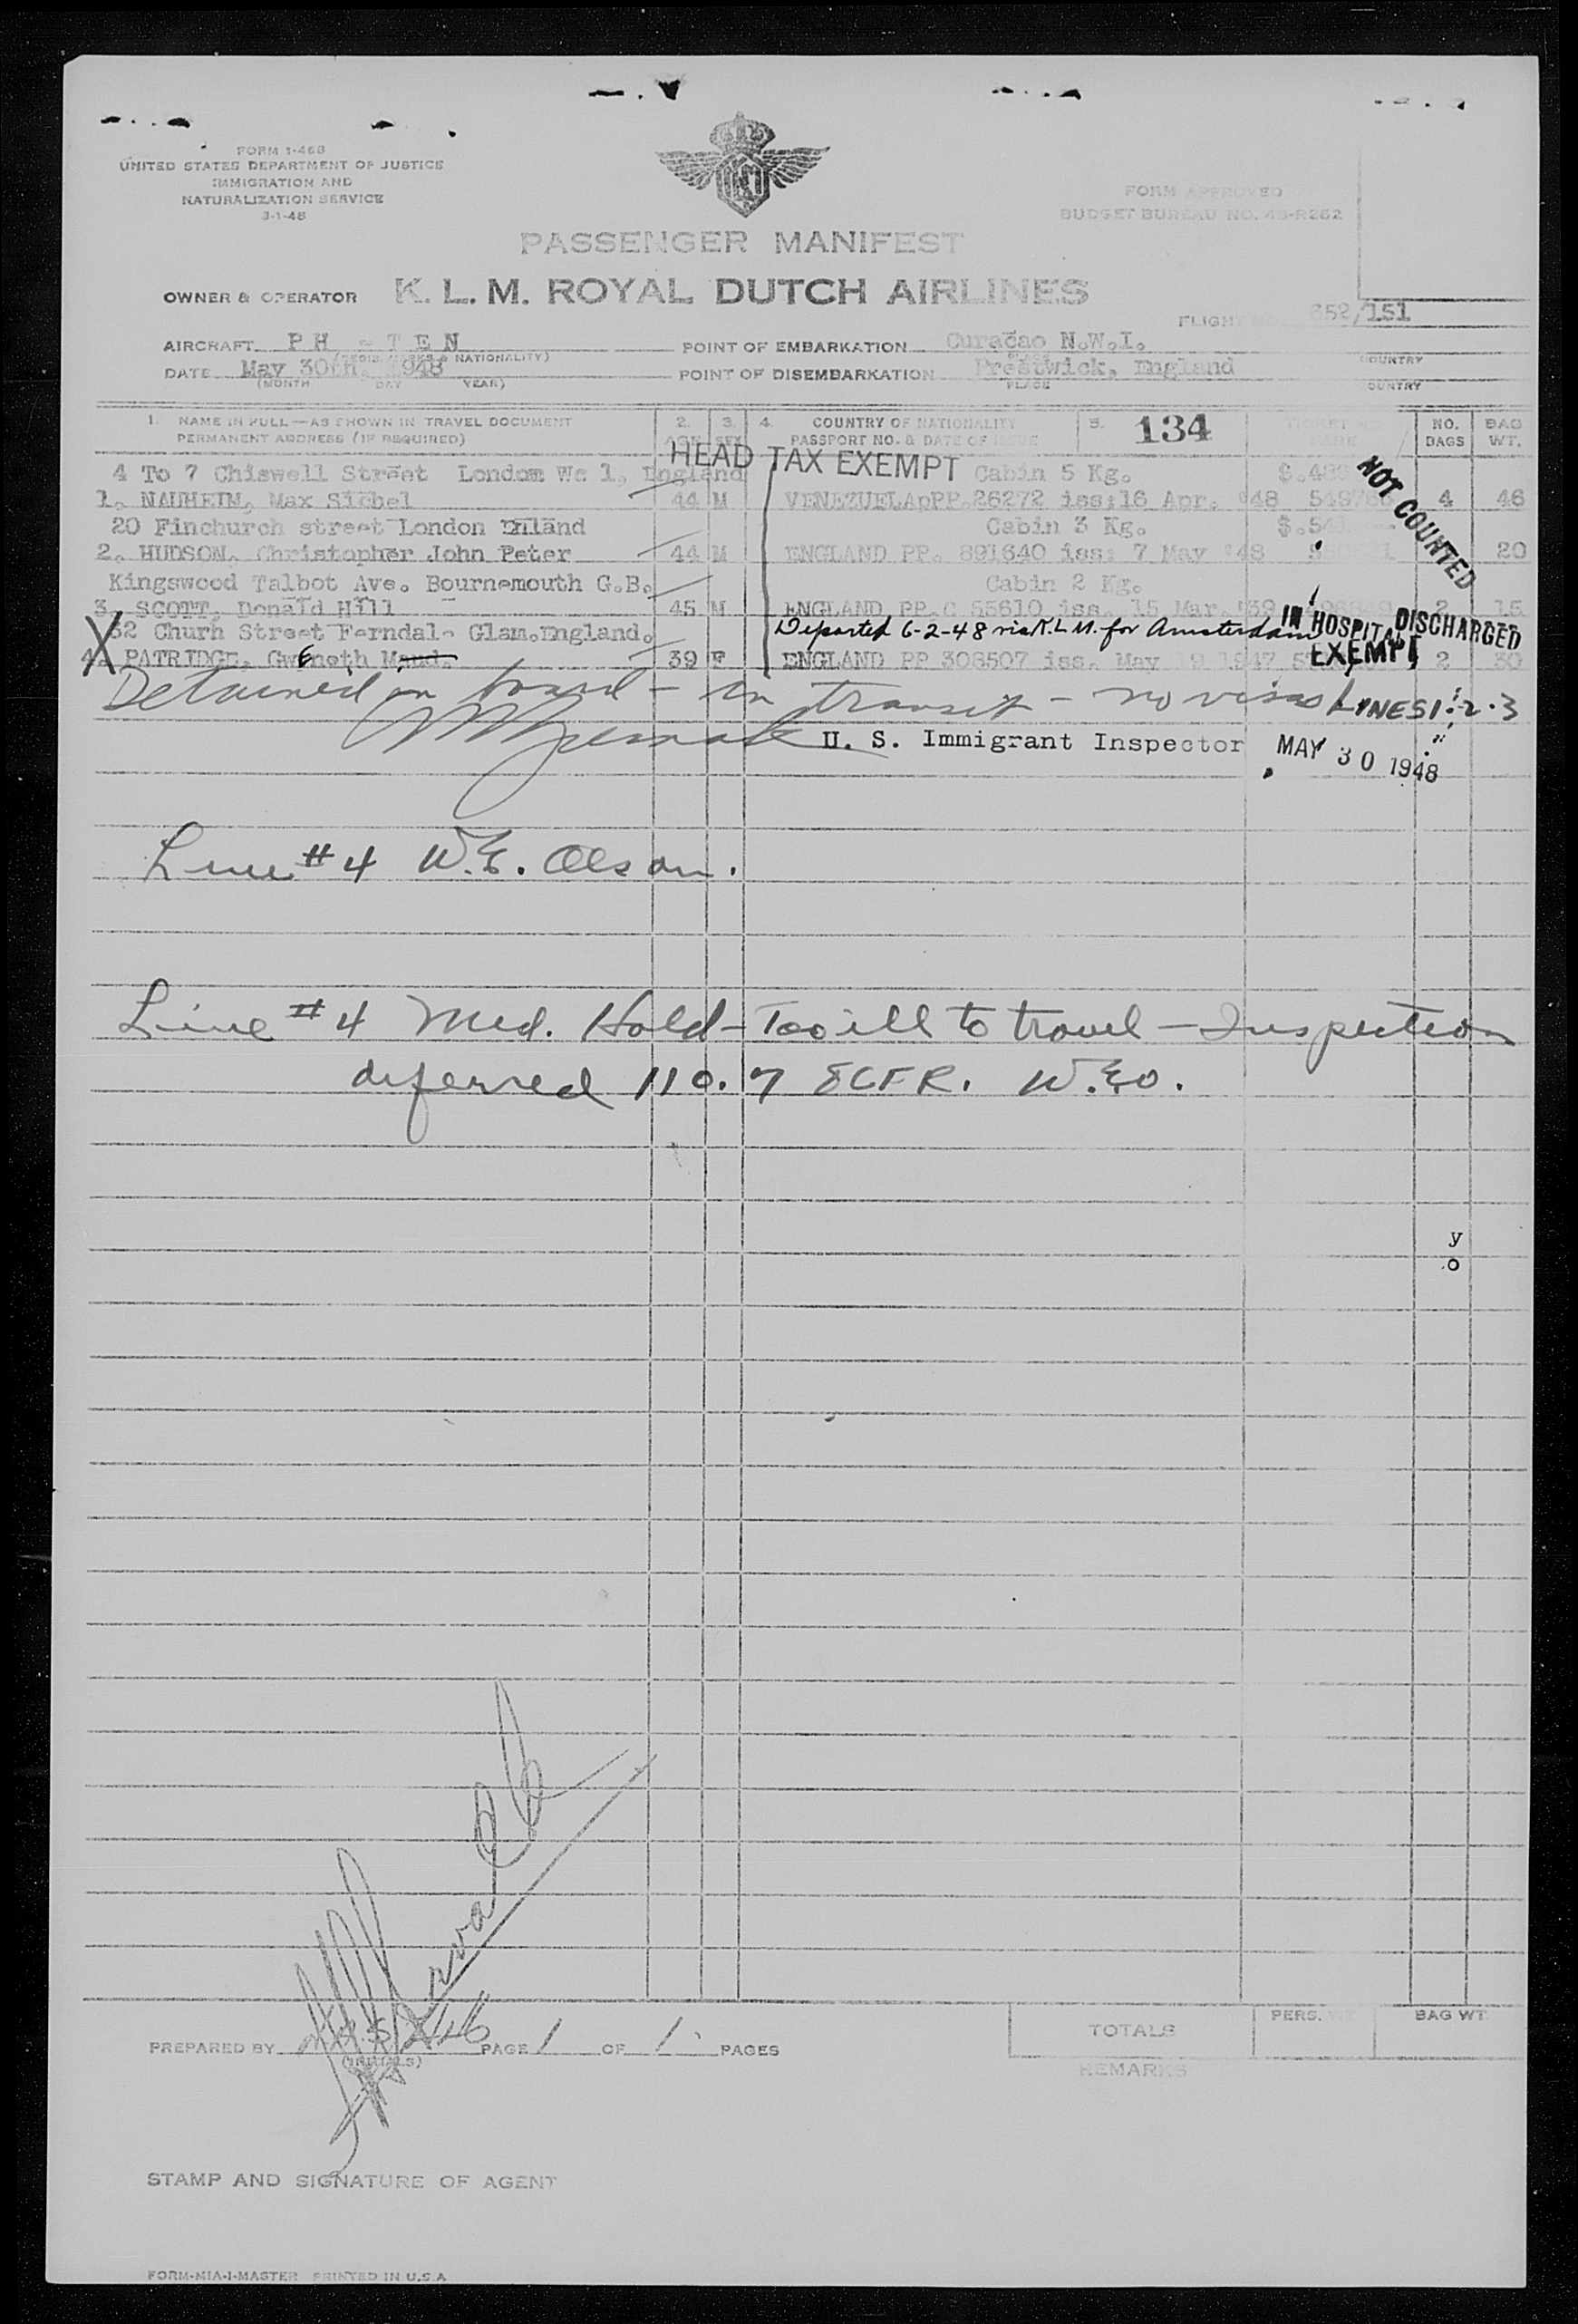 FORM I-466
UNITED STATES DEPARTMENT OF JUSTICE
IMMIGRATION AND
NATURALIZATION SERVICE
3-1-48
KLM
FORM APPROVED
BUDGET BUREAU NO. 43-R262
PASSENGER MANIFEST
OWNER & OPERATOR K. L. M. ROYAL DUTCH AIRLINES
FLIGHT 652/151
AIRCRAFT PH - TEN POINT OF EMBARKATION Curaçao N.W.I.
(REGIS. MARKS & NATIONALITY) PLACE COUNTRY
DATE May 30th, 1948 POINT OF DISEMBARKATION Prestwick, England
(MONTH DAY YEAR) PLACE COUNTRY
1. NAME IN FULL—AS SHOWN IN TRAVEL DOCUMENT 2. 3. 4. COUNTRY OF NATIONALITY 5. 134 NO. BAG
PERMANENT ADDRESS (IF REQUIRED) AGE SEX PASSPORT NO. & DATE OF ISSUE BAGS WT.
HEAD TAX EXEMPT
4 To 7 Chiswell Street London Wc 1, England Cabin 5 Kg.
1. NAUHEIM, Max Sichel 44 M VENEZUELA PP. 26272 iss: 16 Apr. '48 4 46
20 Finchurch street London Enland Cabin 3 Kg.
2. HUDSON, Christopher John Peter 44 M ENGLAND PP. 891640 iss: 7 May '48 20
NOT COUNTED
Kingswood Talbot Ave. Bournemouth G.B. Cabin 2 Kg.
3. SCOTT, Donald Hill 45 M ENGLAND PP. C 55610 iss. 15 Mar. '39 2 15
32 Churh Street Ferndale Glam. England. Departed 6-2-48 via K.L.M. for Amsterdam IN HOSPITAL DISCHARGED
X 4. PATRIDGE, Gweneth Maud. 39 F ENGLAND PP 308507 iss. May 19 1947 EXEMPT 2 30
Detained on board - in transit - no visas LINES 1-2-3
U. S. Immigrant Inspector MAY 30 1948
Line #4 W.E. Olson.
Line #4 Med. Hold - Too ill to travel - Inspection
deferred 110.7 8CFR. W.E.O.
y
o
PREPARED BY PAGE 1 OF 1 PAGES
(INITIALS)
TOTALS PERS. WT BAG WT
REMARKS
STAMP AND SIGNATURE OF AGENT
FORM-MIA-1-MASTER PRINTED IN U.S.A